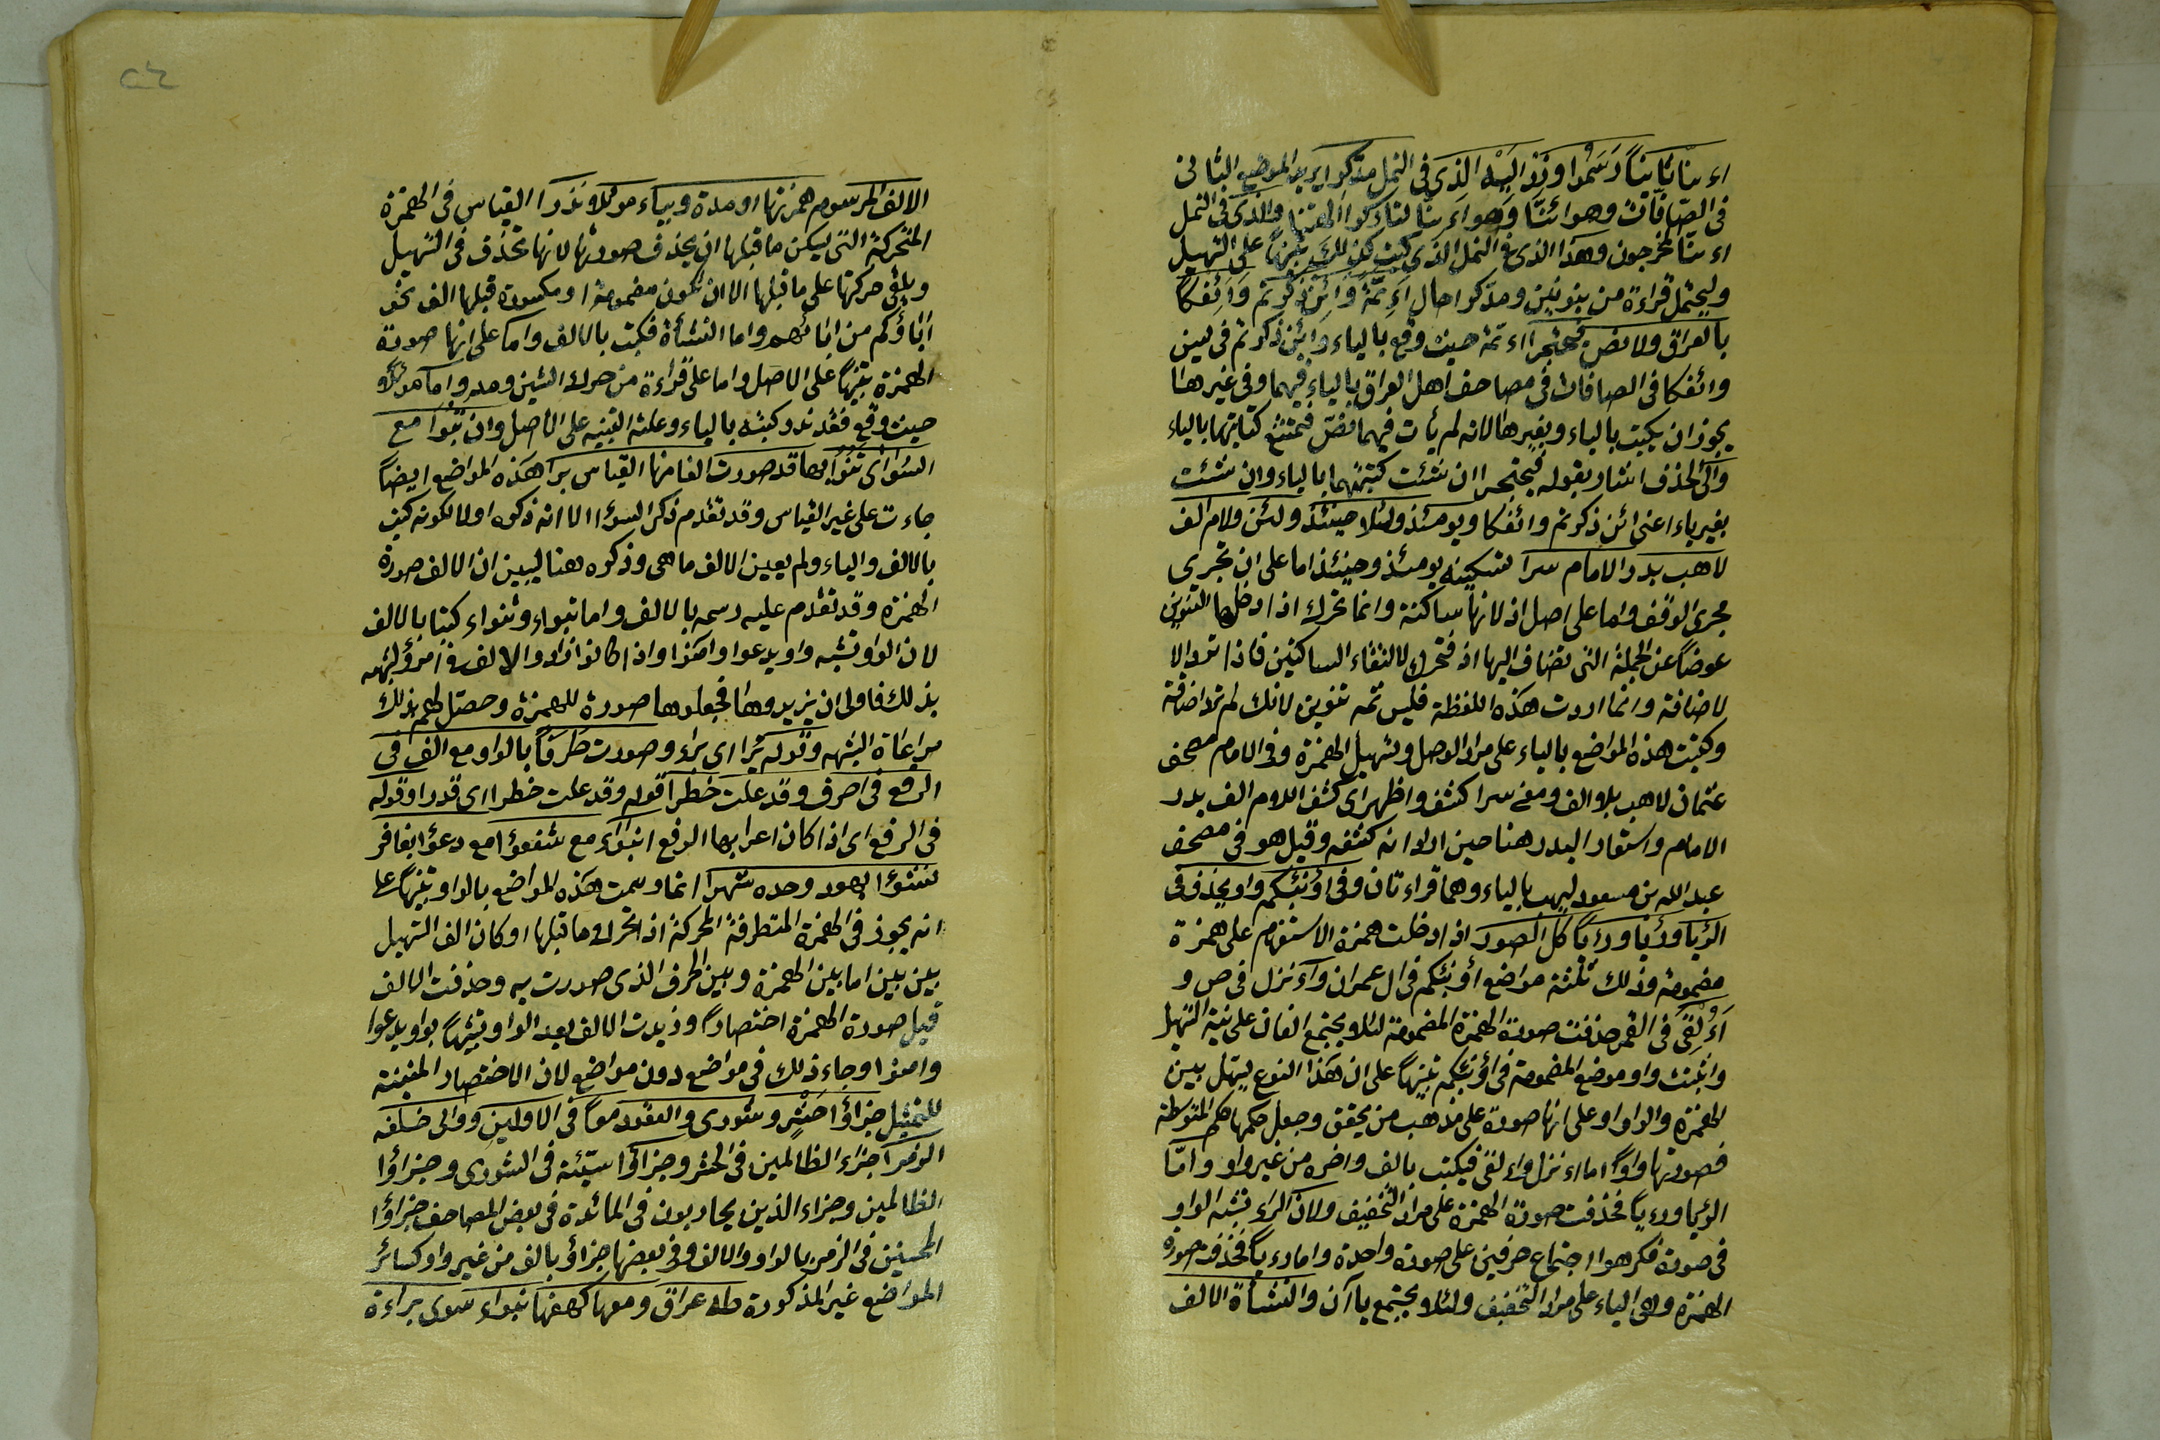 اء ننا ثانيا رسموا وزد اليه الذي في النمل مدكرا يريد الموضع الثاني
في الصافات وهو ائنا وهو اءنا لتاركوا الهتنا والذي في النمل
اءنا لمخرجون وهذا الذي في النمل الذي كتب كذلك تنبيها على التسهيل
وليحتمل قراءة من بنونين ومدكرا حال اءمة وائن ذكرتم وائفكا
بالعراق ولا نص فيحتجرا اءمة حيث وقع بالياء وائن ذكرتم في يس
وائفكا في الصافات في مصاحف اهل العراق بالياء فيهما وفي غيرها
يجوز ان يكتب بالياء وبغيرها لانه لم يأت فيهما نص فيمتنع كتابتها بالياء
والى الحذف اشار بقوله فيحتجرا ان شئت كتبتهما بالياء وان شئت
بغير ياء اعني ائن ذكرتم وائفكا ويومئذ ولئلا حينئذ ولئن ولام الف
لاهب بدر الامام سرا تسكينه يومئذ وحينئذ اما على ان تجري
مجرى الوقف واما على اصل اذ لانها ساكنة وانما تحرك اذا ادخلها التنوين
عوضا عن الجملة التي تضاف اليها اذ فتحرك لالتقاء الساكنين فاذا ترد الا
لاضافة وانما اردت هذه اللفظة فليس ثمه تنوين لانك لم ترد اضافة
وكتبت هذه المواضع بالياء على مراد الوصل وتسهيل الهمزة وفي الامام مصحف
عثمان لاهب بلام الف ومعنى سرا كشف واظهر اي كشف اللام الف بدر
الامام واستعار البدر هنا حين اراد انه كشفه وقيل هو في مصحف
عبد الله بن مسعود ليهب بالياء وهما قراءتان وفي اؤنبئكم واو يحذف في
الرؤيا ورؤيا ورءيا كل الصور اذا دخلت همزة الاستفهام على همزة
مضمومة وذلك ثلثة مواضع أؤنبئكم في ال عمران واءنزل في ص و
أءلقي في القمر حذفت صورة الهمزة المضمومة لئلا يجتمع الفان على نية التسهيل
واثبتت واو موضع المضمومة في اؤنبئكم تنبيها على ان هذا النوع يسهل بين
الهمزة والواو او على انها صورة على مذهب من يحقق وجعل حكمها حكم المتوسطة
فصورتها واوا اما اءنزل واءلقي فيكتب بالف واخره من غير واو واما
الرؤيا ورءيا فحذفت صورة الهمزة على مراد التخفيف ولان الراء تشبه الواو
في صورة فكرهوا اجتماع حرفين على صورة واحدة واما رءيا فحذف صورة
الهمزة وهي الياء على مراد التخفيف ولئلا يجتمع ياآن والنشأة الالف
الالف المرسوم همزتها او مدة وبياء موئلا نذرا القياس في الهمزة
المتحركة التي يسكن ما قبلها ان يحذف صورتها لانها تحذف في التسهيل
ويلقى حركتها على ما قبلها الا ان تكون مضمومة او مكسورة قبلها الف نحو
اباؤكم من ابائهم واما النشأة فكتبت بالالف واما على انها صورة
الهمزة تنبيها على الاصل واما على قراءة من حرك الشين ومد واما موئلا
حيث وقع فقد ندر كتبه بالياء وعلته التنبيه على الاصل وان تبوا مع
السوأى تنوأ بها قد صورت الفا منها القياس برا هذه المواضع ايضا
جاءت على غير القياس وقد تقدم ذكر السوأى الا انه ذكره اولا لكونه كتب
بالالف والياء ولم يعين الالف ما هي وذكره هنا ليبين ان الالف صورة
الهمزة وقد تقدم عليه رسمه بالالف واما تبواء وتنواء كتبا بالالف
لان الواو تشبه واو يدعوا وامنوا واذا كانوا زادوا الالف في امرؤ لشبهه
بذلك فاولى ان يزيدوها فجعلوها صورة للهمزة وحصل لهم بذلك
مراعاة الشبه وقوله برا اي براء وصورت طرفا بالواو مع الف في
الرفع في احرف وقد علت خطرا قوله وقد علت خطرا اي قدرا وقوله
في الرفع اي اذا كان اعرابها الرفع انبؤا مع شفعؤا مع دعؤا بغافر
نشؤا بهود وحده شهرا انما رسمت هذه المواضع بالواو تنبيها على
انه يجوز في الهمزة المتطرفة المحركة اذا تحرك ما قبلها او كان الف التسهيل
بين بين اما بين الهمزة وبين الحرف الذي صورت به وحذفت الالف
قبل صورة الهمزة اختصارا وزيدت الالف بعد الواو تشبيها بواو يدعوا
وامنوا وجاء ذلك في مواضع دون مواضع لان الاختصار المثبتة
للتمثيل جزاؤا حشر وشورى والعقود معا في الاولين ووالى خلفه
الزمرا جزاء الظالمين في الحشر وجزاؤا سيئة في الشورى وجزاؤا
الظالمين وجزاء الذين يحاربون في المائدة في بعض المصاحف جزاؤا
المحسنين في الزمر بالواو والالف وفي بعضها جزاؤ بالف من غير واو كسائر
المواضع غير المذكورة طه عراق ومعها كهفها نبواء سوى براءة